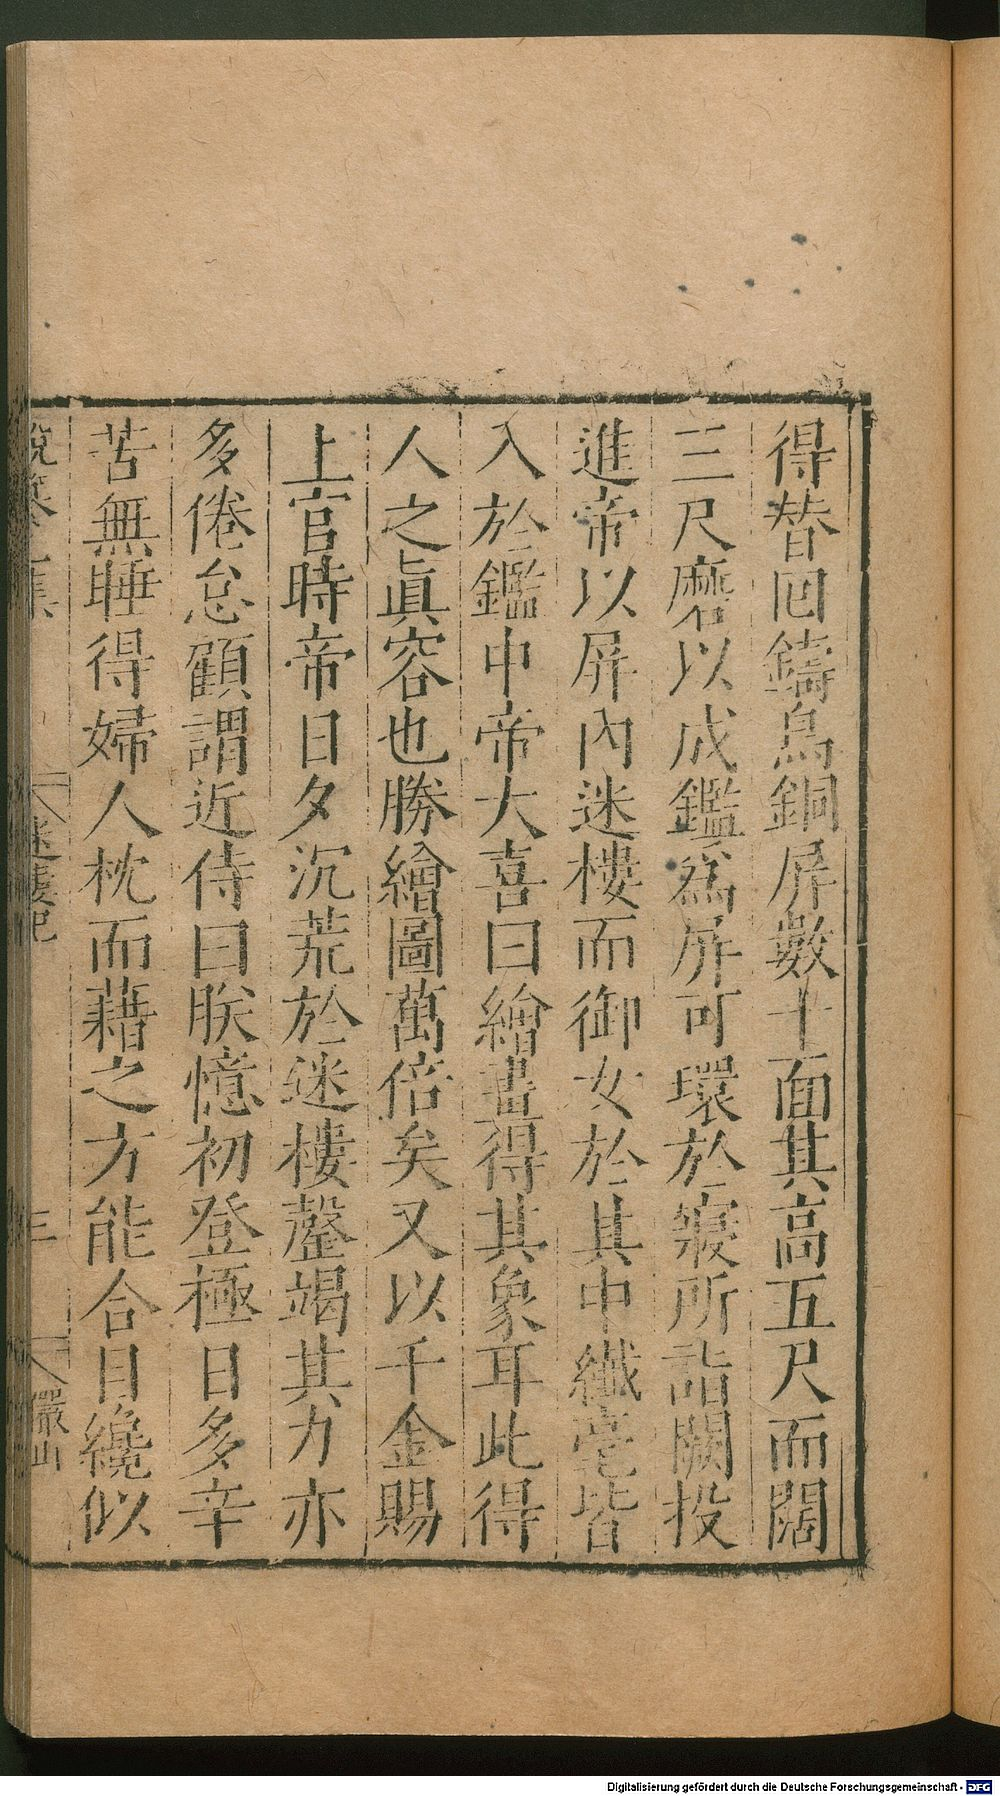 得替回鑄烏銅屏數十面其高五尺而闊
三尺磨以成鑑為屏可環於寢所詣闕投
進帝以屏內迷樓而御女於其中纖毫皆
入於鑑中帝大喜曰繪畫得其象耳此得
人之眞容也勝繪圖萬倍矣又以千金賜
上官時帝日夕沉荒於迷樓罄竭其力亦
多倦怠顧謂近侍曰朕憶初登極日多辛
苦無睡得婦人枕而藉之方能合目纔似
說纂 集
迷樓記
三
儼山
Digitalisierung gefördert durch die Deutsche Forschungsgemeinschaft - DFG